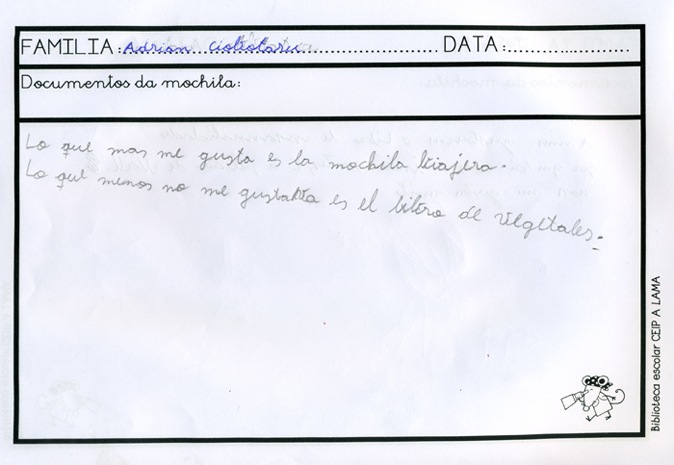 FAMILIA: Adrian Ciobotariu DATA:
Documentos da mochila:
Lo que mas me gusta es la mochila biajera.
Lo que menos no me gustabta es el libro de vegetales.
Biblioteca escolar CEIP A LAMA